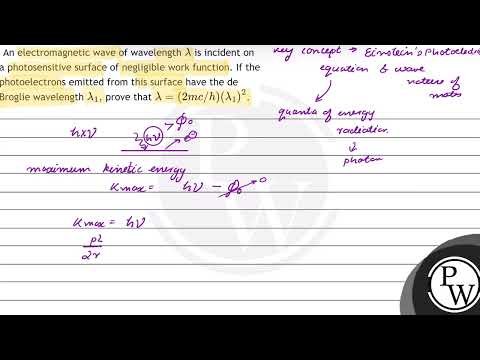 An electromagnetic wave of wavelength λ is incident on
a photosensitive surface of negligible work function. If the
photoelectrons emitted from this surface have the de
Broglie wavelength λ₁, prove that λ = (2mc/h)(λ₁)².
key concept → Einstein's Photoelectr
equation & wave
nature of
matter
quanta of energy
radiation
↓
photon
h×ν
hν → ϕ₀
maximum kinetic energy
Kmax = hν − ϕ₀ → 0
Kmax = hν
p2
2r
PW
PW